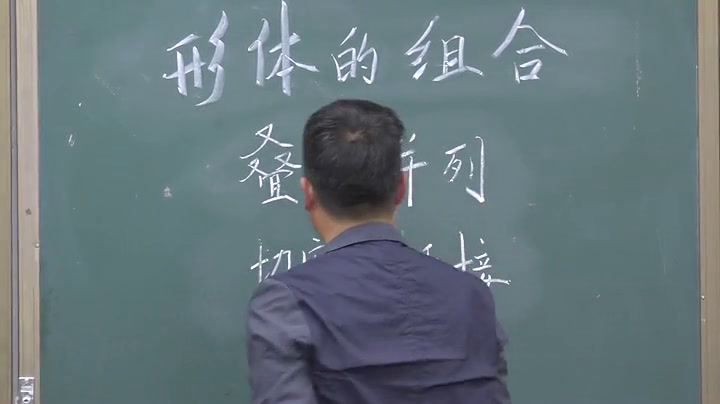 形体的组合
叠 并列
切 接